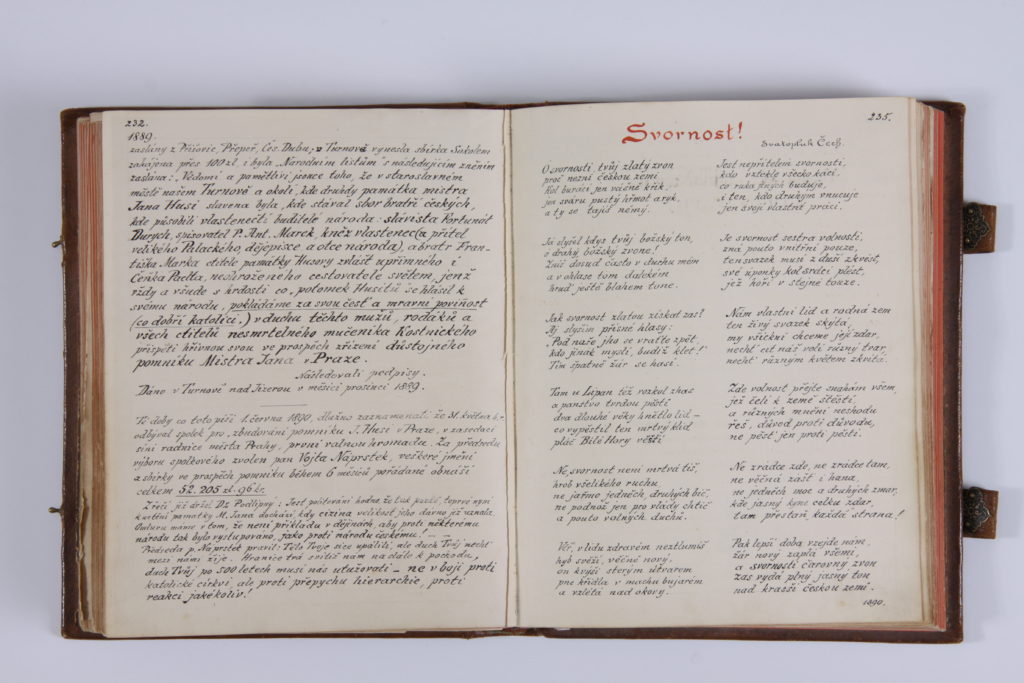 232.
1889.
zaslány z Příšovic, Přepeř, Čes. Dubu, v Turnově vynesla sbírka Sokolem
zahájena přes 100 zl. i byla „Národním listům" s následujícím zněním
zaslána: „Vědomi a pamětlivi jsouce toho, že v staroslavném
městě našem Turnově a okolí, kde druhdy památka mistra
Jana Husi slavena byla, kde stával sbor bratří českých,
kde působili vlastenečtí buditelé národa: slavista Fortunát
Durych, spisovatel P. Ant. Marek, kněz vlastenec (a přítel
velikého Palackého dějepisce a otce národa), a bratr Fran-
tiška Marka ctitele památky Husovy zvlášt upřímného i
Čeňka Paclta, neohroženého cestovatele světem, jenž
vždy a všude s hrdostí co „potomek Husitů" se hlásil k
svému národu, pokládáme za svou čest a mravní povinost
(co dobří katolíci.) v duchu těchto mužů, rodáků a
všech ctitelů nesmrtelného mučeníka Kostnického
přispěti hřivnou svou ve prospěch zřízení důstojného
pomníku Mistra Jana v Praze.
Následovali podpisy.
Dáno v Turnově nad Jizerou v měsíci prosinci 1889.
Té doby co toto píši 1. června 1890, dlužno zaznamenati, že 31. května t. r.
odbýval spolek pro „zbudování pomníku J. Husi v Praze", v zasedací
síni radnice města Prahy, první valnou hromadu. Za předsedu
výboru spolkového zvolen pan Vojta Náprstek, veškeré jmění
a sbírky ve prospěch pomníku během 6 měsíců pořádané obnáší
celkem 52.205 zl. 96 kr.
Žřeči již držel Dr Podlipný: Jest politování hodno, že tak pozdě, teprve nyní
k uctění památky M. Jana dochází, kdy cizina velikost jeho dávno již uznala.
Omluvu máme v tom, že není příkladu v dějinách, aby proti některému
národu tak bylo vystupováno, jako proti národu českému! — —
Předseda p. Náprstek pravil: Tělo Tvoje sice upálili, ale duch Tvůj nechť
mezi námi žije. Hranice tvá svítiž nám na dále k pochodu,
duch Tvůj po 500 letech musí nás utužovati – ne v boji proti
katolické církvi, ale proti přepychu hierarchie, proti
reakci jakékoliv!
235.
Svornost!
Svatopluk Čech.
O svornosti, tvůj zlatý zvon
proč nezní českou zemí
Kol burácí jen vášně křik,
jen sváru pustý hřmot a ryk,
a ty se tajíš němý.
Já slyšel kdys tvůj božský ton,
ó drahý božský zvone!
Zníš dosud často v duchu mém
a v ohlase tom dalekém
hruď ještě blahem tone.
Jak svornost zlatou získat zas?
Aj slyším přísné hlasy:
„Pod naše jho se vraťte zpět,
kdo jinak myslí, budiž klet!"
Tím špatně žár se hasí.
Tam u Lipan též rozkol zhas
a panstvo tvrdou pěstí
dva dlouhé věky hnětlo lid –
co vypěstil ten mrtvý klid
pláč Bílé Hory věstí
Ne, svornost není mrtvá tiš,
hrob všelikého ruchu
ne jařmo jedněch, druhých bič,
ne podnož jen pro vlády chtíč
a pouto volných duchů.
Věř, v lidu zdravém neztlumíš
hyb svěží, věčně nový,
on kvyší sterým útvarem
pne křídla v machu bujarém
a vzlétá nad okovy.
Jest nepřítelem svornosti,
kdo vztekle všecko kácí,
co ruka jiných buduje,
i ten, kdo druhým vnucuje
jen svoji vlastní práci.
Je svornost sestra volnosti,
zná pouto vnitřní pouze,
ten svazek musí z duší zkvést,
své úponky kol srdcí plést,
jež hoří v stejné touze.
Nám vlastní lid a rodná zem
ten živý svazek skýtá,
my všickni chceme její zdar,
nechť cit náš volí různý tvar,
nechť různým květem zkvítá.
Zde volnost přejte snahám všem,
jež čelí k země štěstí
a různých mínění neshodu
řeš, důvod proti důvodu,
ne pěst jen proti pěsti.
Ne zrádce zde, ne zrádce tam,
ne věčná zášť i hana,
ne jedněch moc a druhých zmar,
kde jasný kyne celku zdar,
tam přestaň, každá strana!
Pak lepší doba vzejde nám,
žár nový zaplá všemi,
a svornosti čarovný zvon
zas vydá plný jasný ton
nad krásší českou zemí.
1890.